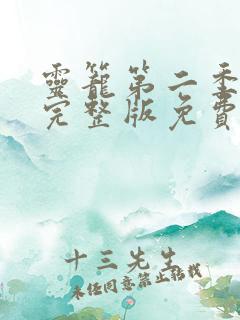 靈籠第二季
完整版免費
十三先生
未经同意禁止转载